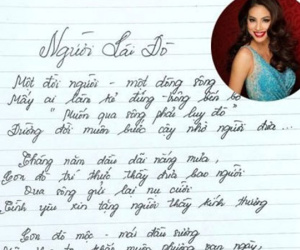 Người Lái Đò
Một đời người - một dòng sông
Mấy ai làm kẻ đứng trông bến bờ
"Muốn qua sông phải lụy đò"
Đường đời muôn bước cậy nhờ người đưa ...
Tháng năm dầu dãi nắng mưa,
Con đò trí thức thầy đưa bao người
Qua sông gửi lại nụ cười
Tình yêu xin tặng người thầy kính thương
Con đò mộc - mái đầu sương